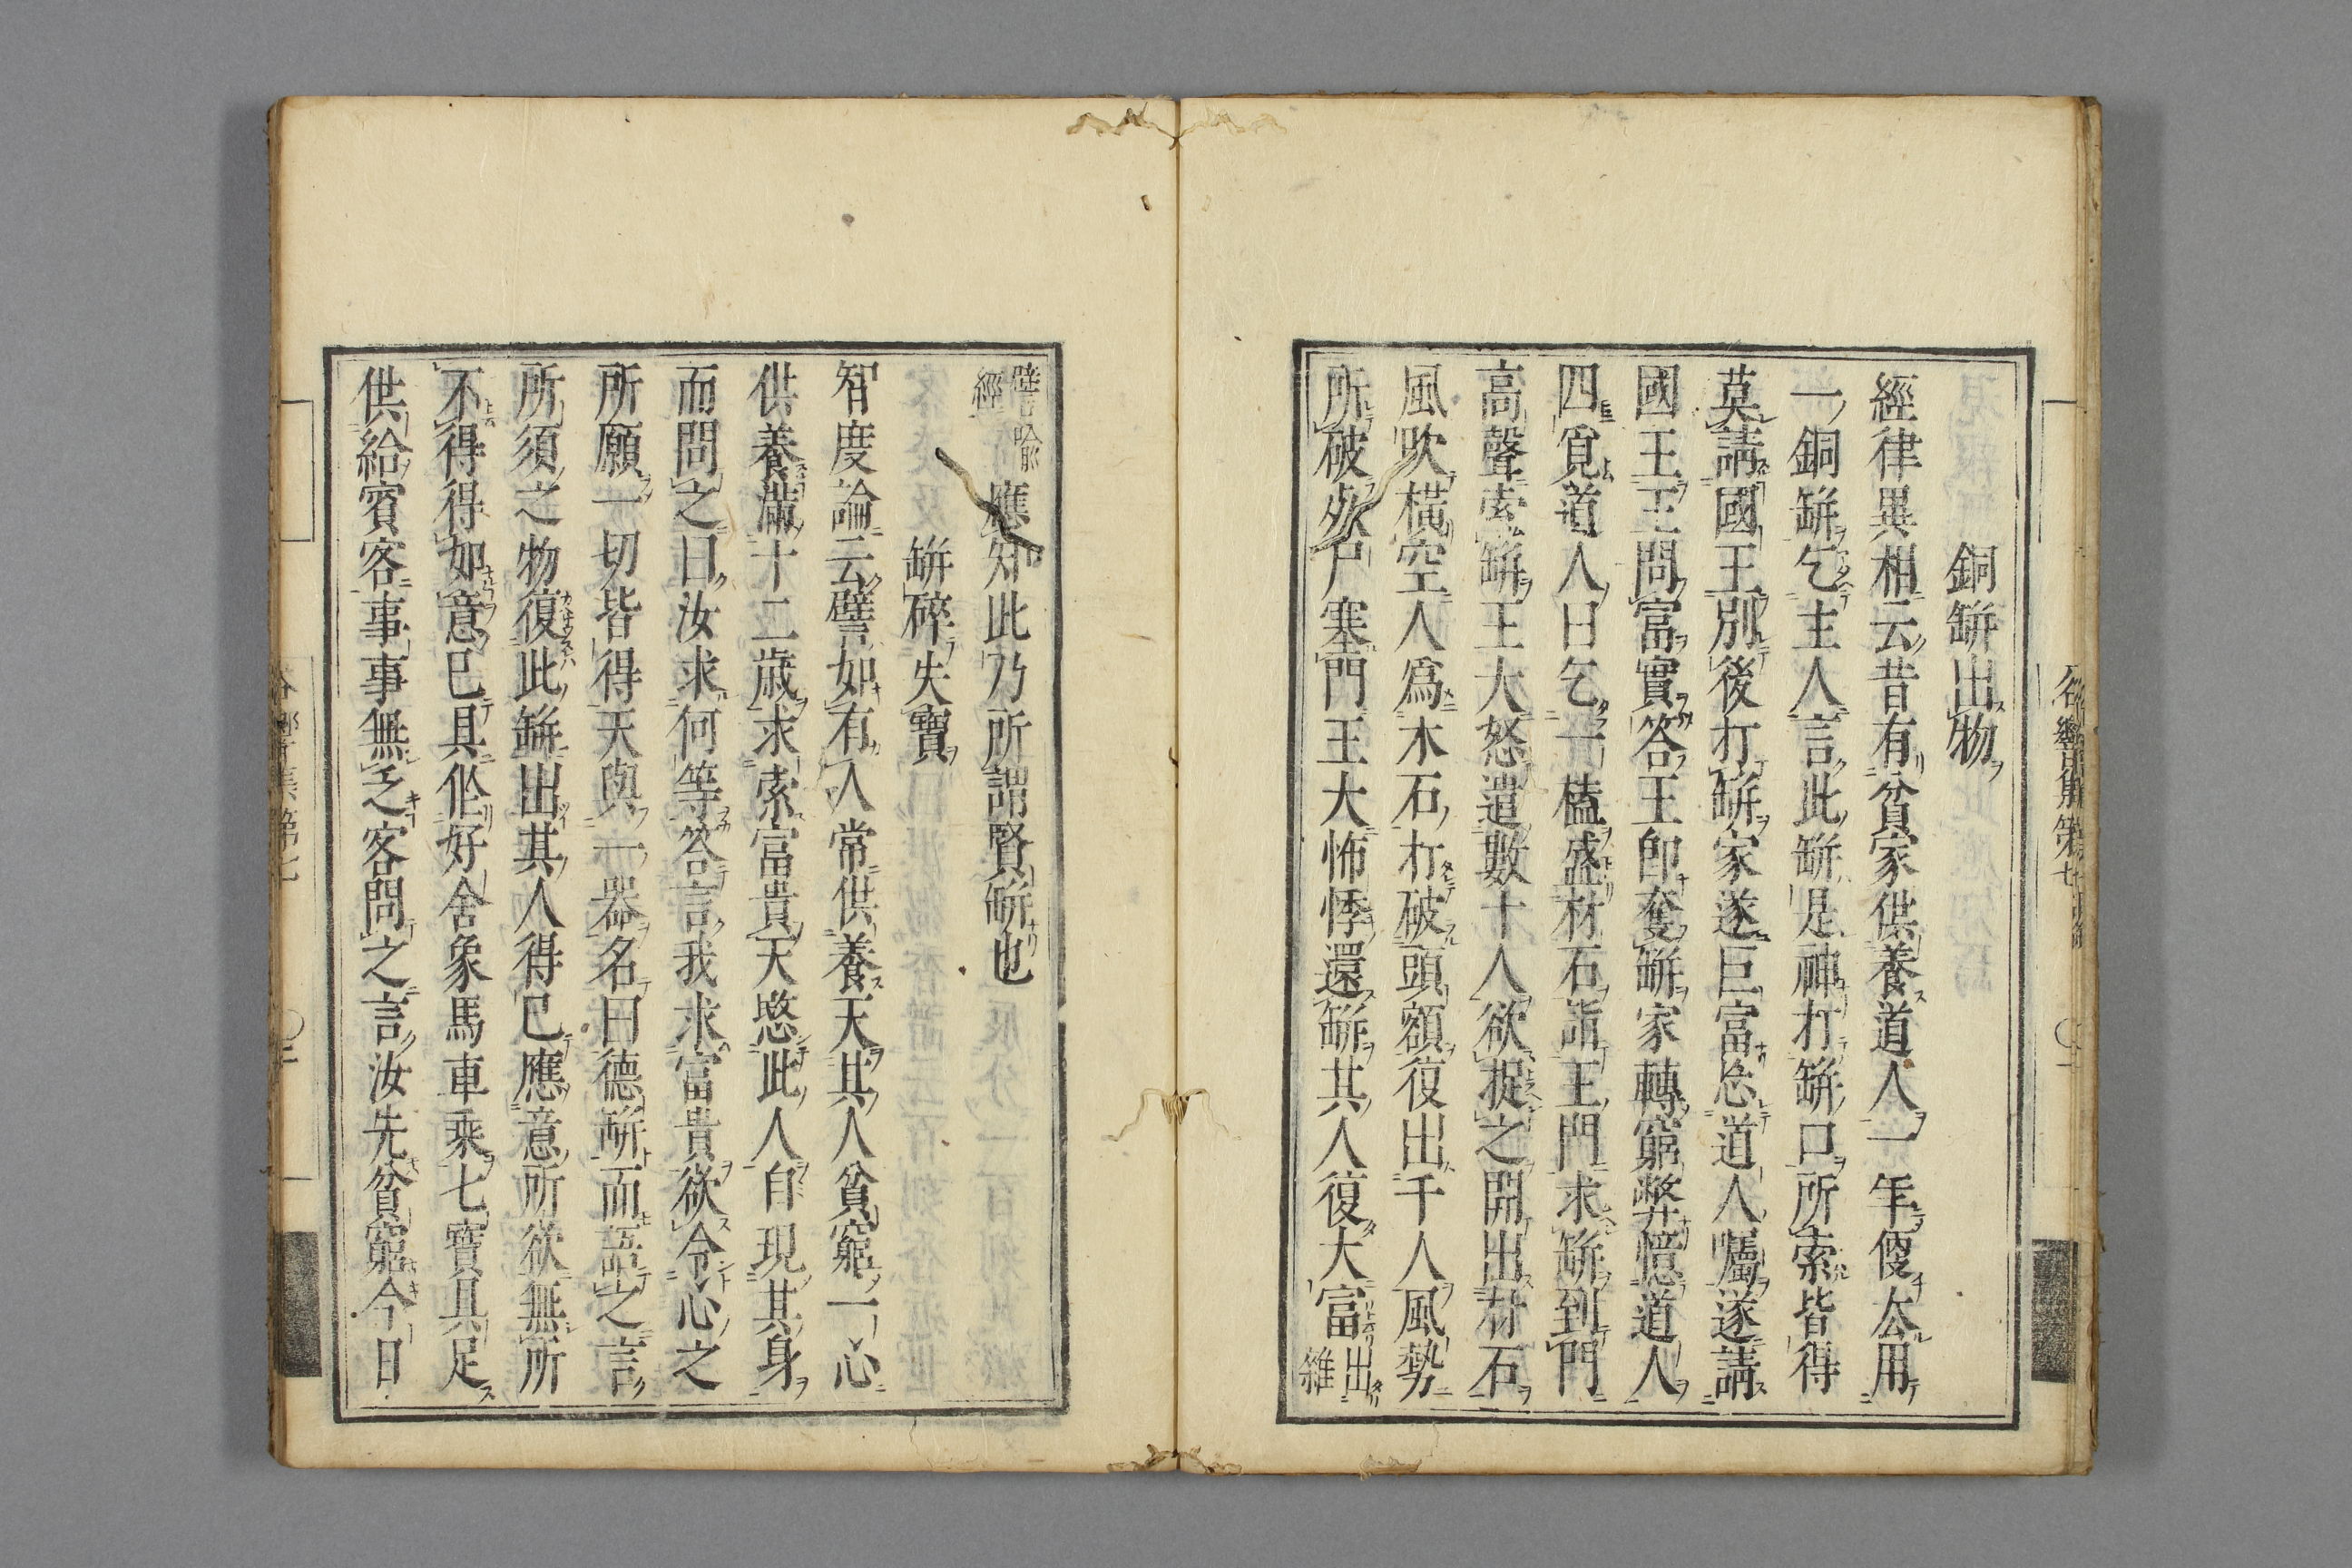 銅缾出物
經律異相云昔有貧家供養道人一年便厺用
一銅缾乞主人言此缾是神打缾口所索皆得
莫請國王別後打缾家遂巨富忩道人囑遂請
國王王問富實答王即奪缾家轉窮弊憶道人
四覓道人曰乞一榼盛材石詣王門求缾到門
高聲索缾王大怒遣數十人欲捉之開出材石
風吹橫空人為木石打破頭額復出千人風勢
所破死尸塞門王大怖悸還缾其人復大富出雜
譬喻經應知此乃所謂賢缾也
缾碎失寶
智度論云譬如有人常供養天其人貧窮一心
供養滿十二歲求索富貴天愍此人自現其身
而問之曰汝求何等答言我求富貴欲令心之
所願一切皆得天與一器名曰德缾而語之言
所須之物復此缾出其人得已應意所欲無所
不得得如意已具作好舍象馬車乘七寶具足
供給賓客事事無乏客問之言汝先貧窮今日